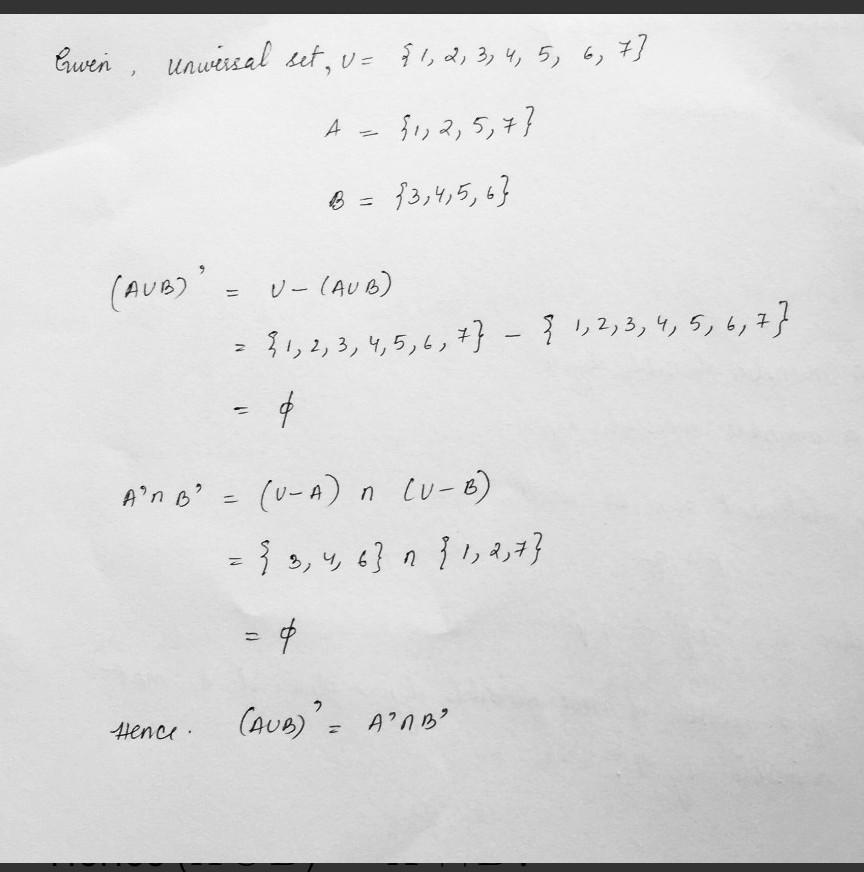 Given, universal set, U = {1, 2, 3, 4, 5, 6, 7}
A = {1, 2, 5, 7}
B = {3, 4, 5, 6}
(A∪B)' = U − (A∪B)
= {1, 2, 3, 4, 5, 6, 7} − {1, 2, 3, 4, 5, 6, 7}
= ϕ
A'∩B' = (U−A) ∩ (U−B)
= {3, 4, 6} ∩ {1, 2, 7}
= ϕ
Hence. (A∪B)' = A'∩B'